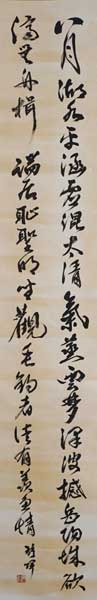 八月湖水平涵虛混太清氣蒸雲夢澤波撼岳陽城欲
濟無舟楫端居恥聖明坐觀垂釣者徒有羨魚情